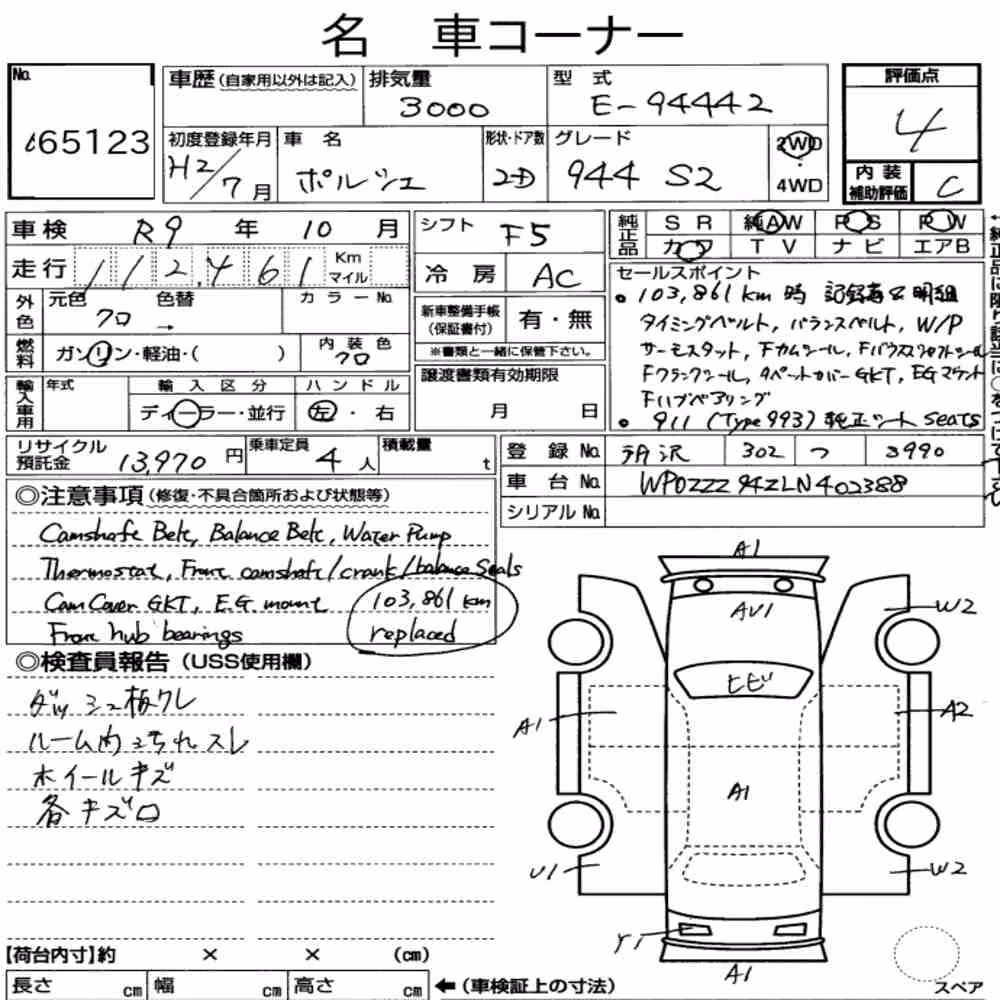 名 車コーナー
No. 65123
車歴 (自家用以外は記入)
排気量 3000
型式 E-94442
評価点 4
初度登録年月 H2/7月
車名 ポルシェ
形状・ドア数 2D
グレード 944 S2
2WD・4WD
内装補助評価 C
車検 R9年 10月
走行 112,461 Km マイル
シフト F5
冷房 AC
純正品 SR 純AW PS PW
カワ TV ナビ エアB
外色 元色 クロ → 色替 カラーNo.
燃料 ガソリン・軽油・( )
内装色 クロ
新車整備手帳(保証書付) 有・無
※書類と一緒に保管下さい。
輸入車用 年式 輸入区分 ディーラー・並行
ハンドル 左・右
譲渡書類有効期限 月 日
セールスポイント
• 103,861km時 記録簿&明細
タイミングベルト, バランスベルト, W/P
サーモスタット, Fカムシール, Fバランスシャフトシール
Fクランクシール, タペットカバーGKT, EGマウント
Fハブベアリング
• 911 (Type 993) 純正シート seats
リサイクル預託金 13,970円
乗車定員 4人
積載量 t
登録No. 所沢 302 つ 3990
車台No. WP0ZZZ94ZLN402388
シリアルNo.
◎注意事項 (修復・不具合箇所および状態等)
Camshaft Belt, Balance Belt, Water Pump
Thermostat, Front camshaft/crank/balance Seals
Cam Cover GKT, E.G. mount 103,861 km
Front hub bearings replaced
◎検査員報告 (USS使用欄)
ダッシュ板ワレ
ルーム内ヨゴれスレ
ホイールキズ
各キズロ
A1
AU1
W2
ヒビ
A1
A2
A1
U1
W2
Y1
A1
スペア
【荷台内寸】約 × × (cm)
長さ cm 幅 cm 高さ cm ←(車検証上の寸法)